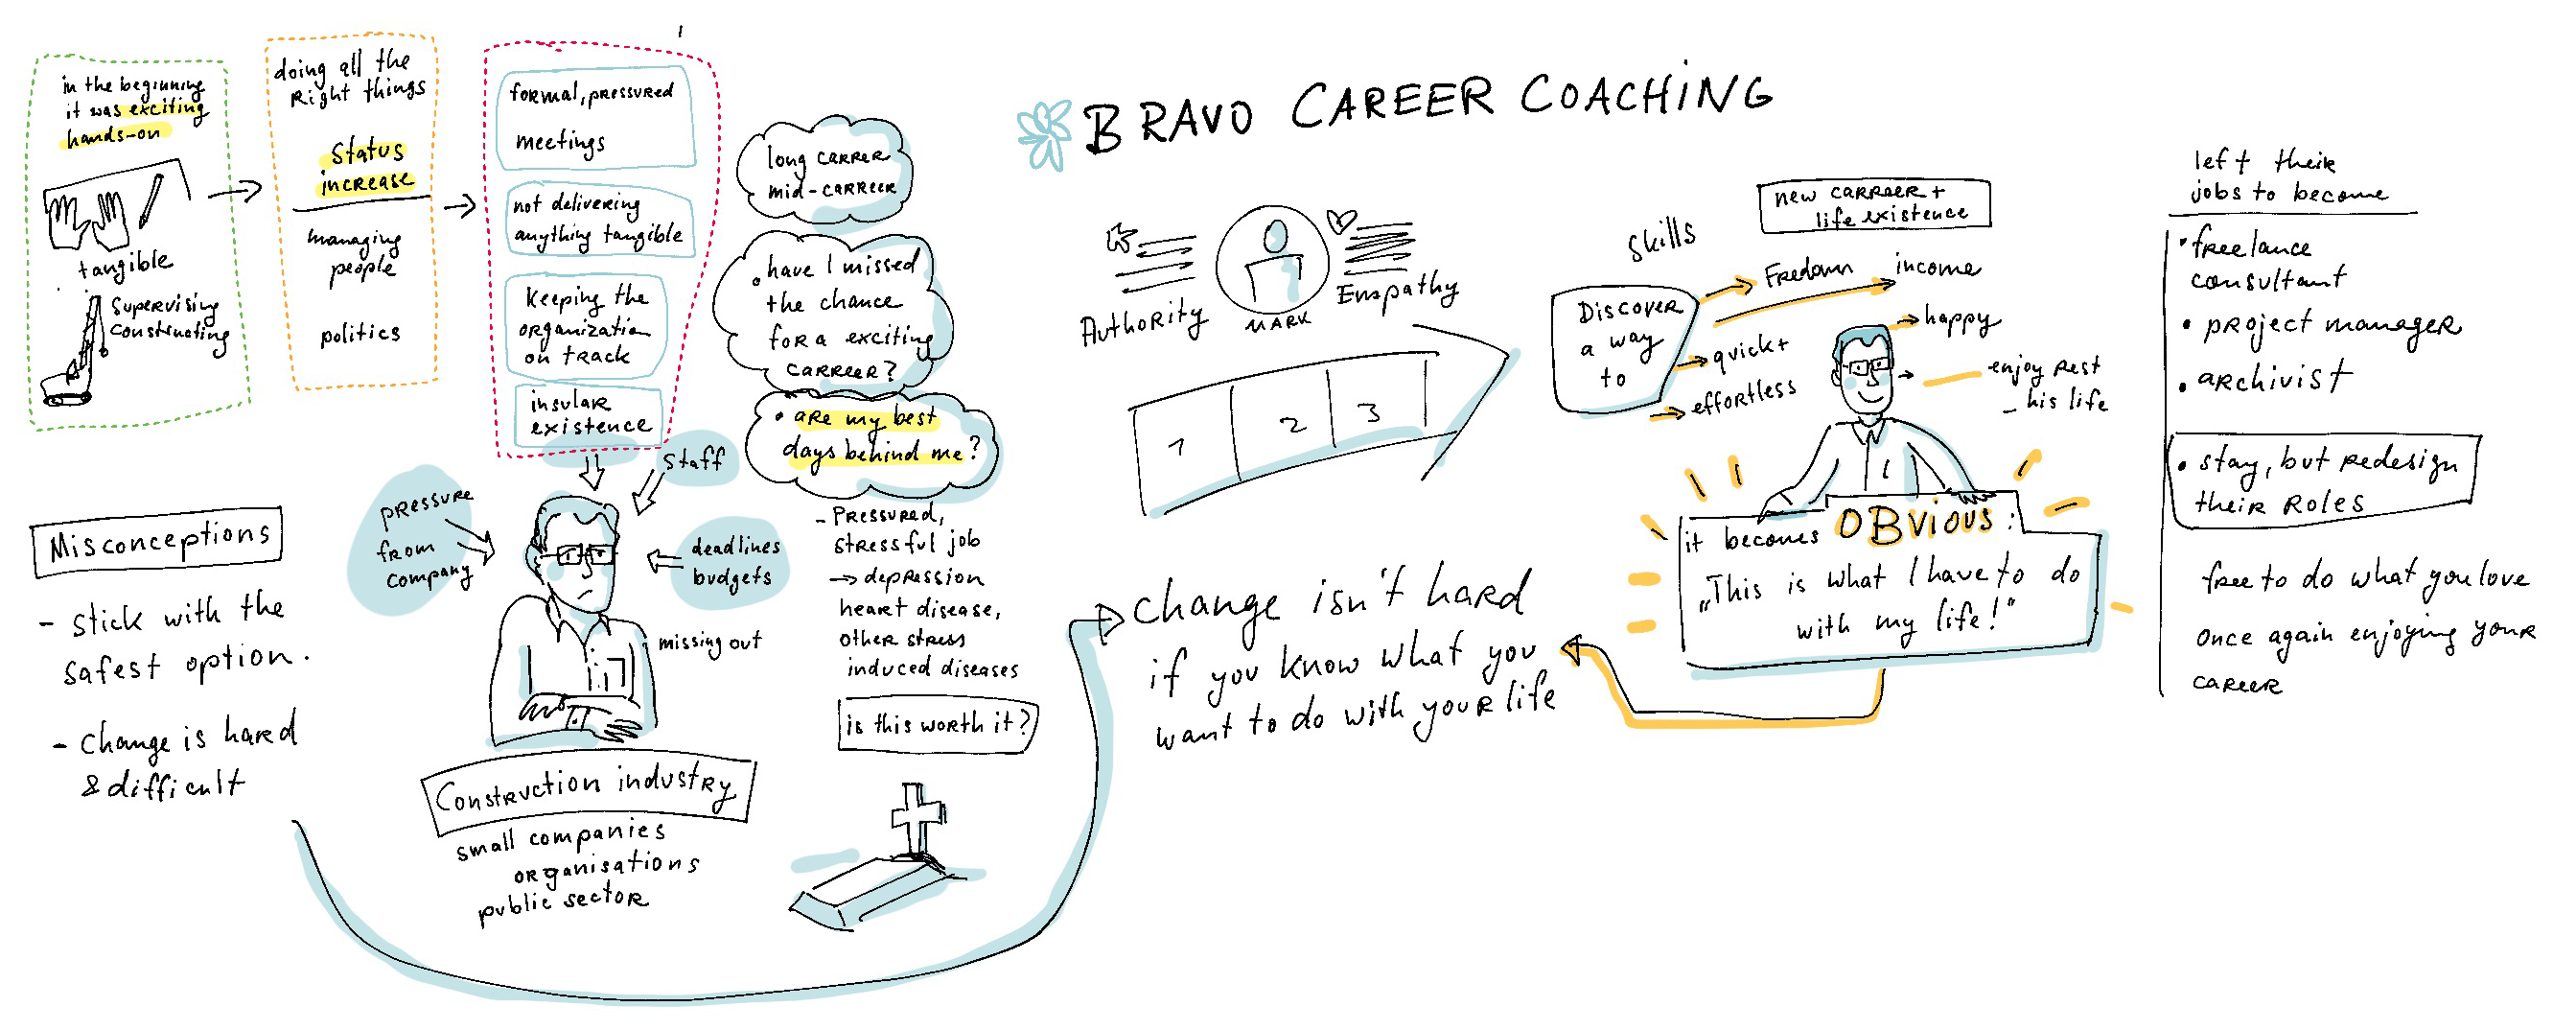 in the beginning
it was exciting
hands-on
tangible
Supervising
constructing
doing all the
Right things
Status
increase
managing
people
politics
formal, pressured
meetings
not delivering
anything tangible
Keeping the
organization
on track
insular
existence
long carrer
mid-carreer
. have I missed
the chance
for a exciting
carreer?
• are my best
days behind me?
Misconceptions
- Stick with the
safest option.
- Change is hard
& difficult
pressure
from
company
staff
deadlines
budgets
missing out
Construction industry
small companies
organisations
public sector
- Pressured,
stressful job
→ depression
heart disease,
other stress
induced diseases
is this worth it?
BRAVO CAREER COACHING
Authority
MARK
Empathy
1 2 3
change isn't hard
if you know what you
want to do with your life
new carreer +
life existence
skills
Discover
a way
to
income
happy
quick +
effortless
enjoy rest
his life
it becomes OBVIOUS:
„This is what I have to do
with my life!"
left their
jobs to become
• freelance
consultant
• project manager
• archivist
• stay, but redesign
their roles
free to do what you love
once again enjoying your
career